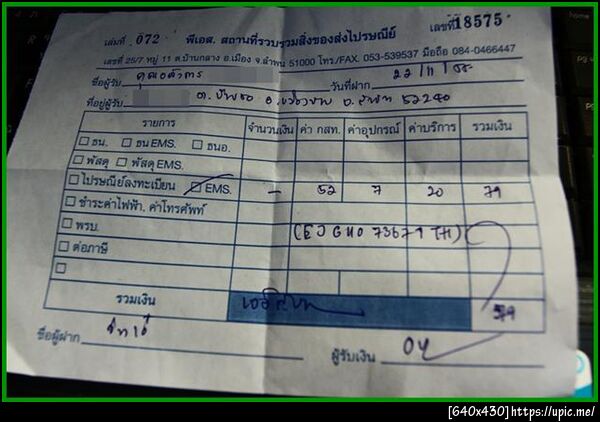 เล่มที่ 072 พีเอส. สถานที่รวบรวมสิ่งของส่งไปรษณีย์ เลขที่ 18575
เลขที่ 25/7 หมู่ 11 ต.บ้านกลาง อ.เมือง จ.ลำพูน 51000 โทร./FAX. 053-539537 มือถือ 084-0466447
ชื่อผู้รับ วันที่ฝาก 22/11/
ที่อยู่ผู้รับ 52240
รายการ จำนวนเงิน ค่า กสท. ค่าอุปกรณ์ ค่าบริการ รวมเงิน
ธน. ธน EMS. ธนอ.
พัสดุ พัสดุ EMS.
ไปรษณีย์ลงทะเบียน EMS. - 52 7 20 79
ชำระค่าไฟฟ้า, ค่าโทรศัพท์
พรบ. 73679 TH)
ต่อภาษี
รวมเงิน 79
ชื่อผู้ฝาก
ผู้รับเงิน
[640x430] https://upic.me/